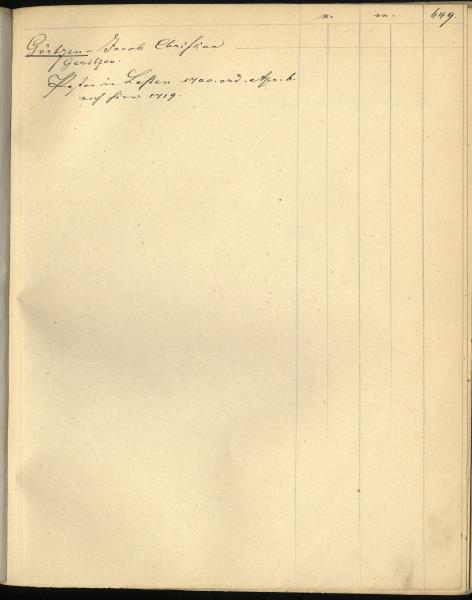 n. m. 649.
Görtzen - Jacob Christian
Goritzen.
Pastor in Lesten 1700. ord. Apr. 6.
noch hier 1719.